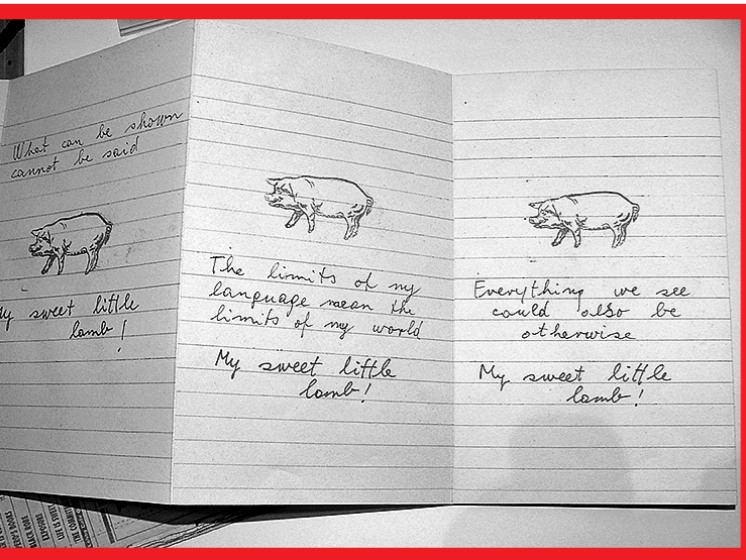 What can be shown
cannot be said
My sweet little
lamb!
The limits of my
language mean the
limits of my world
My sweet little
lamb!
Everything we see
could also be
otherwise
My sweet little
lamb!